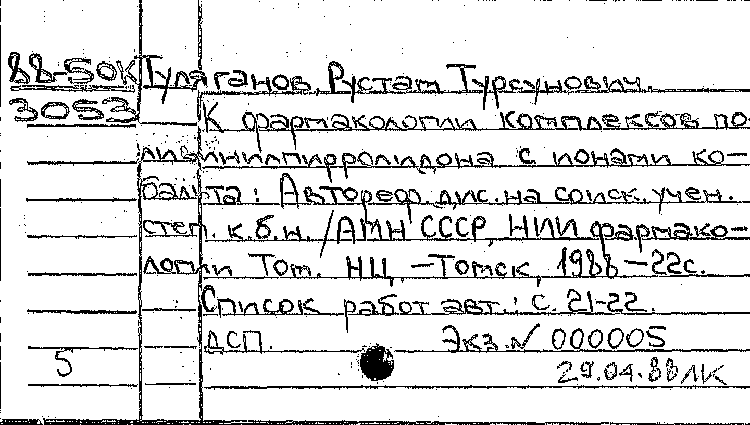 88-50К Туляганов, Рустам Турсунович.
3053 К фармакологии комплексов по-
ливинилпирролидона с ионами ко-
бальта: Автореф. дис. на соиск. учен.
степ. к.б.н. /АМН СССР, НИИ фармако-
логии Том. НЦ, -Томск, 1988 -22с.
Список работ авт.: с. 21-22.
ДСП. Экз. № 000005
5
29.04.88 ЛК